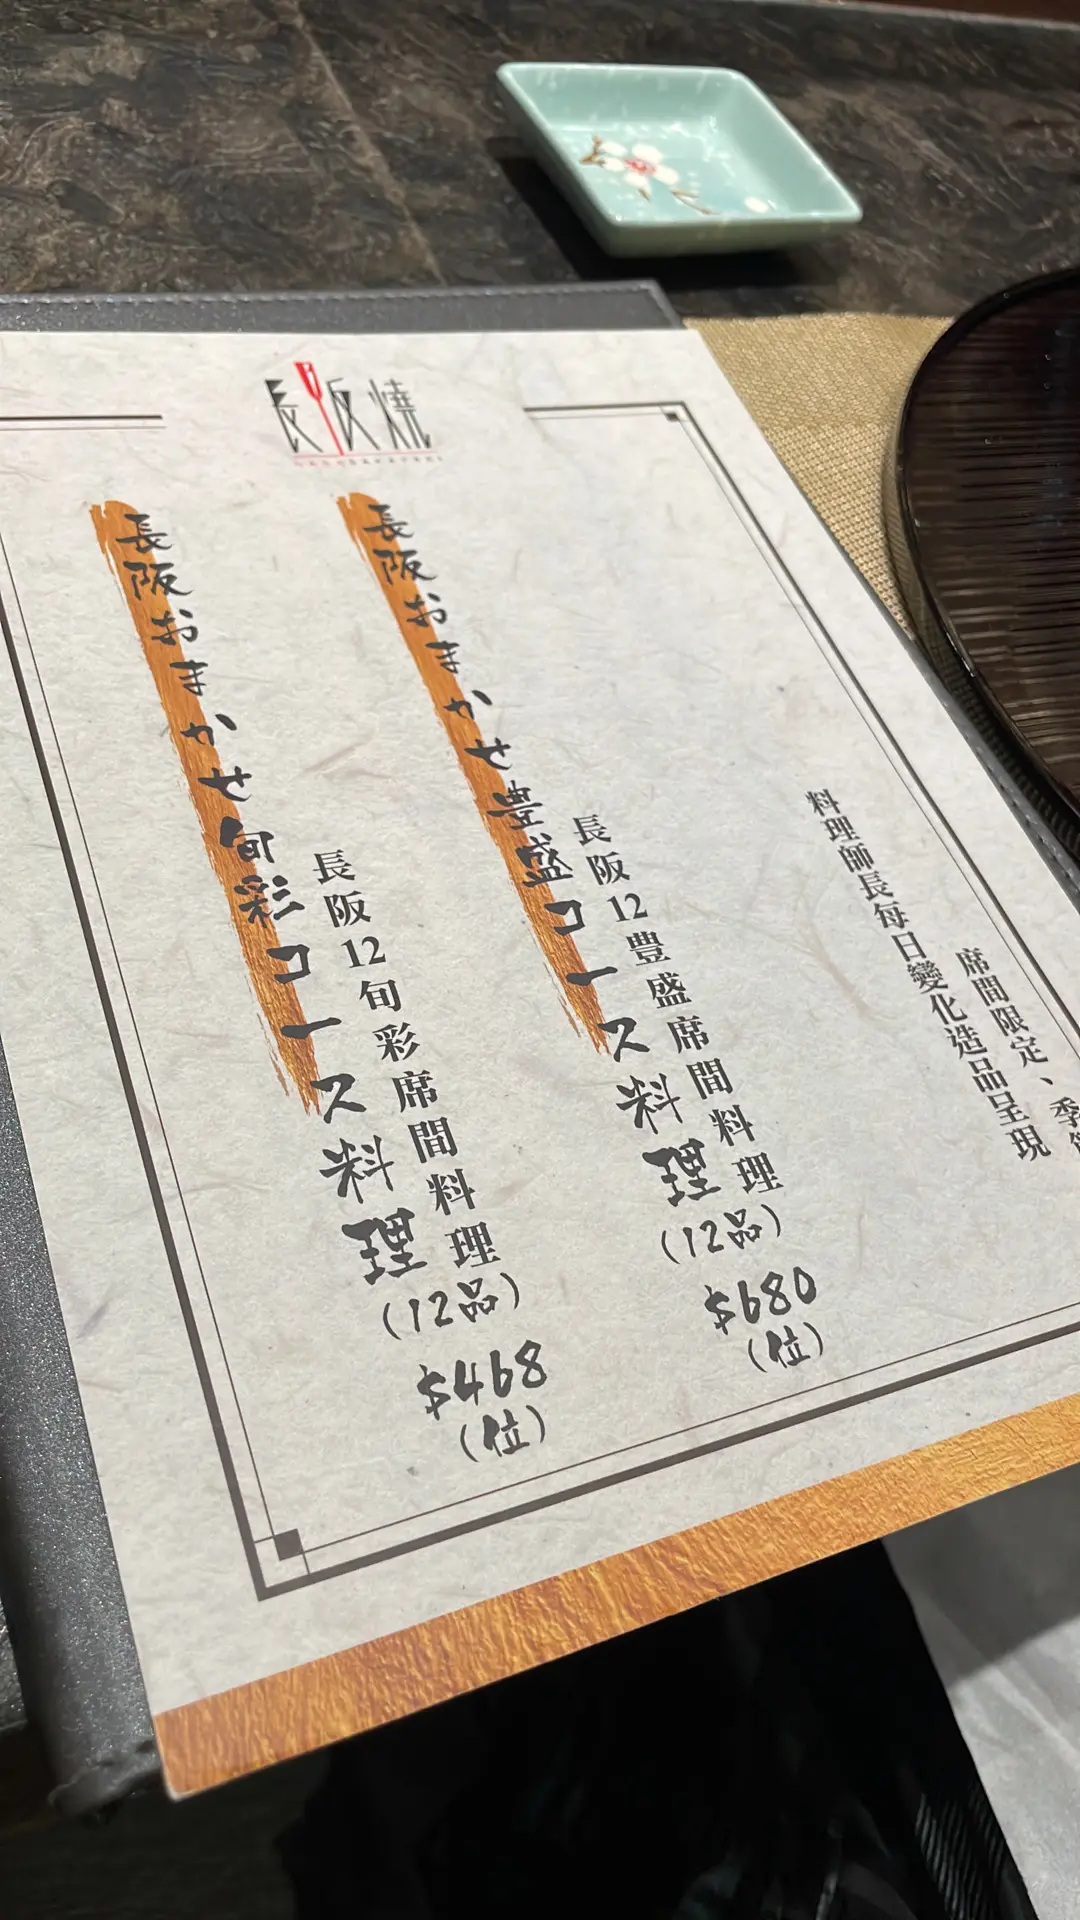 長阪燒
席間限定、季
料理師長每日變化造品呈現
長阪おまかせ豊盛コース料理
(12品)
$680
(位)
長阪12豊盛席間料理
長阪おまかせ旬彩コース料理
(12品)
$468
(位)
長阪12旬彩席間料理